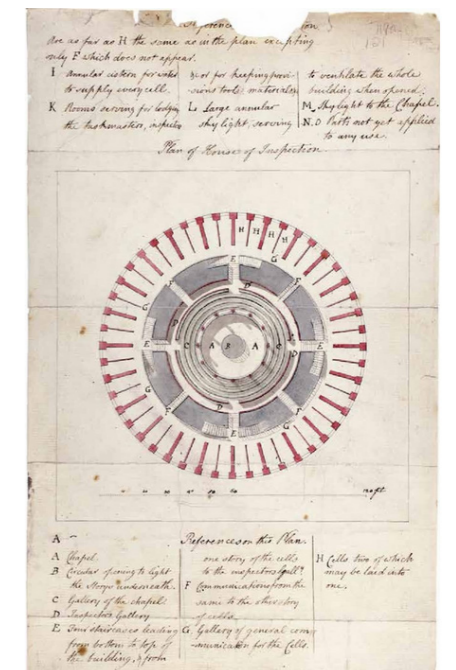 are as far as H the same as in the plan excepting
only F which does not appear.
I Annular cistern for water
to supply every cell.
K Rooms serving for lodging
the taskmasters, inspector
or for keeping provi-
sions tools materials
L Large annular
sky light, serving
to ventilate the whole
building when opened.
M Skylight to the Chapel.
N.O Parts not yet applied
to any use.
Plan of House of Inspection
H H H H
E
G
F
D
C A B A C
E
G
F
D
E
G
References on this Plan.
A
A Chapel
B Circular opening to light
the Storys underneath.
C Gallery of the chapel
D Inspector's Gallery
E Four staircases leading
from bottom to top of
the building, & from
one story of the cells
to the inspectors Gally
F Communications from the
same to the other story
of cells
G Gallery of general com-
munication for the Cells.
H Cells two of which
may be laid into
one.